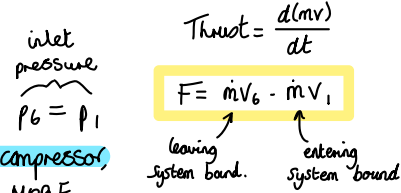 inlet
pressure
p6 = p1
compressor,
Thrust = d(mv)/dt
F = ṁV6 - ṁV1
leaving
system bound.
entering
system bound